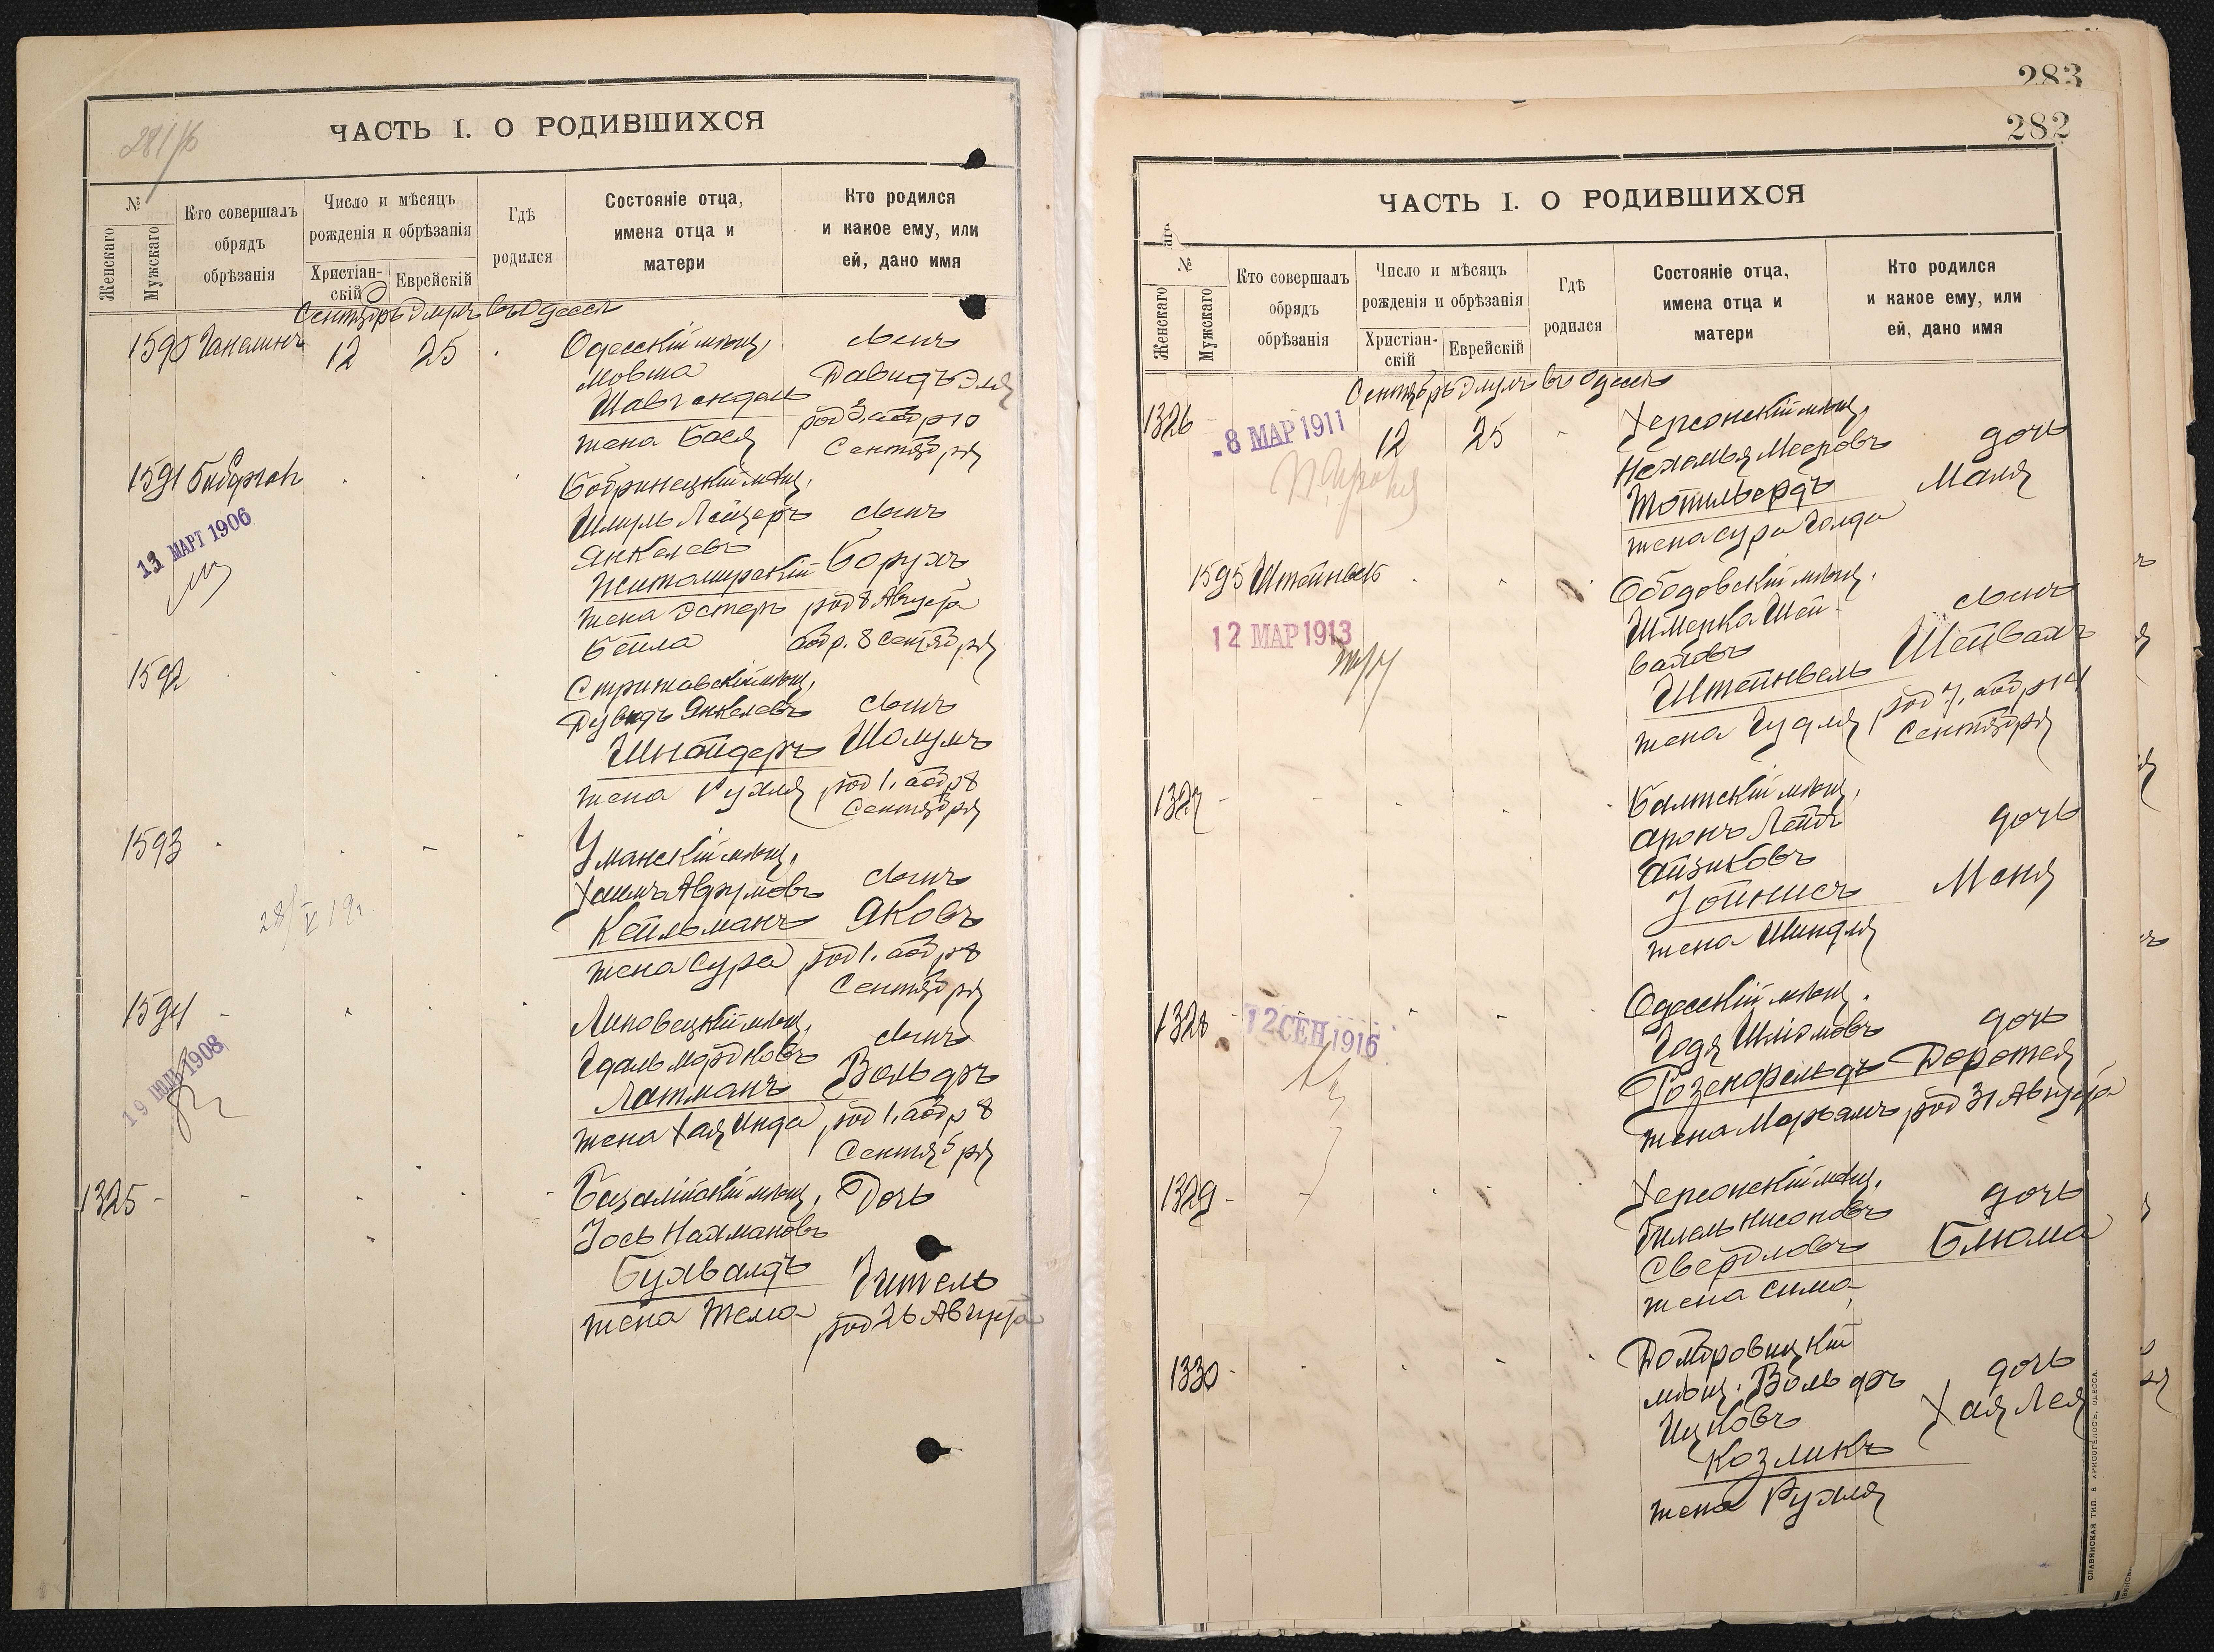 281/б
ЧАСТЬ I. О РОДИВШИХСЯ
№
Женскаго
Мужскаго
Кто совершалъ
обрядъ
обрѣзанія
Число и мѣсяцъ
рожденія и обрѣзанія
Христіан-
скій
Еврейскій
Гдѣ
родился
Состояніе отца,
имена отца и
матери
Кто родился
и какое ему, или
ей, дано имя
Сентябрь Элулъ въ Одессѣ
1590
12
25
Одесскій мѣщ.
Мовша
жена Бася
сынъ
Давидъ Эля
род 3, аобр 10
Сентября
1591
13 МАРТ 1906
Бобринецкій мѣщ.
Шмуль Лейзеръ
Янкелевъ
Житомирскій
жена Эстеръ
Бейла
сынъ
Борухъ
род 8 Августа
аобр. 8 Сентября
1592
Стрижавскій мѣщ.
Дувидъ Янкелевъ
Шнайдеръ
жена Рухля
сынъ
Шолумъ
род 1, аобр 8
Сентября
1593
Уманскій мѣщ.
Хаимъ Аврумовъ
Кейльманъ
жена Сура
сынъ
Яковъ
род 1. аобр 8
Сентября
1594
19 ІЮЛЬ 1908
Липовецкій мѣщ.
Удаль Мордковъ
Латманъ
жена Хая Инда
сынъ
Вольфъ
род 1, аобр 8
Сентября
1325
мѣщ.
Іось Нахмановъ
Бухвалдъ
жена
Дочь
Гитель
род 26 Августа
283
282
ЧАСТЬ I. О РОДИВШИХСЯ
№
Женскаго
Мужскаго
Кто совершалъ
обрядъ
обрѣзанія
Число и мѣсяцъ
рожденія и обрѣзанія
Христіан-
скій
Еврейскій
Гдѣ
родился
Состояніе отца,
имена отца и
матери
Кто родился
и какое ему, или
ей, дано имя
Сентябрь Элулъ въ Одессѣ
1326
-8 МАР 1911
12
25
Херсонскій мѣщ.
Нехемья Мееровъ
жена Сура Голда
дочь
Маня
1595 Штейнвель
12 МАР 1913
Ободовскій мѣщ.
Шмерка Шей-
валовъ
Штейнвель
жена Гудля
сынъ
Шейвахъ
род 7, аобр 14
Сентября
1327
Балтскій мѣщ.
Аронъ Лейбъ
Айзиковъ
Зойнисъ
жена Шиндля
дочь
Меня
1328
12 СЕН 1916
Одесскій мѣщ.
Годя Шлiомовъ
Розенфельдъ
жена Марьямъ
дочь
Доротея
род 31 Августа
1329
Херсонскій мѣщ.
Гилель Нисоновъ
Свердловъ
жена Сима
дочь
Блюма
1330
Домбровицкій
мѣщ. Вольфъ
Ицковъ
Козликъ
жена Рухля
дочь
Хая Лея
СЛАВЯНСКАЯ ТИП. В ХРИСОГЕЛОСЪ, ОДЕССА.